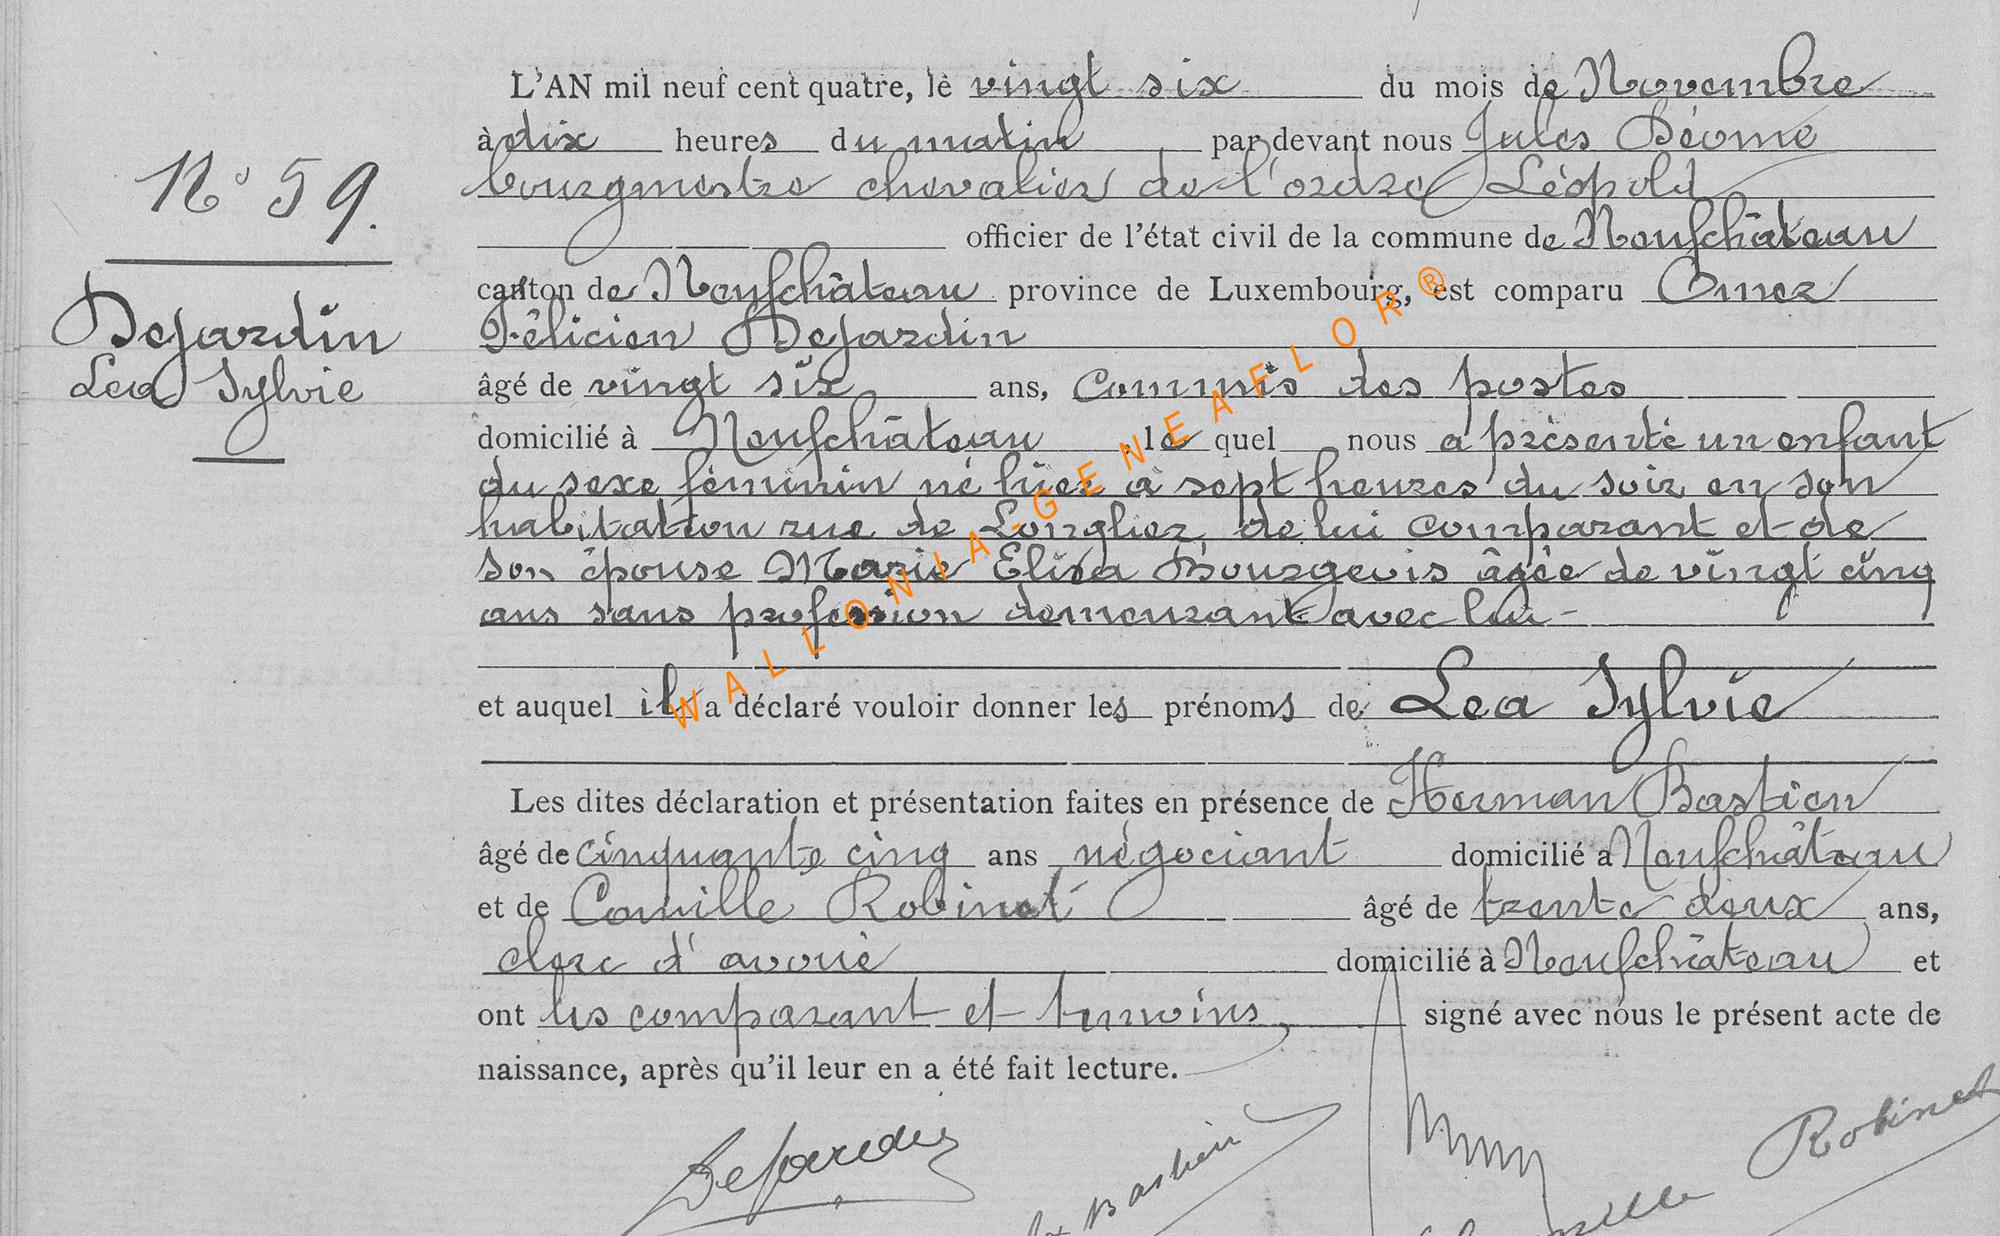 L'AN mil neuf cent quatre, le vingt six du mois de Novembre
à dix heures du matin par devant nous Jules Déome
bourgmestre chevalier de l'ordre Léopold
officier de l'état civil de la commune de Neufchâteau
canton de Neufchâteau province de Luxembourg, est comparu Omer
Félicien Dejardin
âgé de vingt six ans, commis des postes
domicilié à Neufchâteau, le quel nous a présenté un enfant
du sexe féminin né hier à sept heures du soir en son
habitation rue de Longlier, de lui comparant et de
son épouse Marie Elisa Bourgeois âgée de vingt cinq
ans sans profession demeurant avec lui
et auquel il a déclaré vouloir donner les prénoms de Lea Sylvie
Les dites déclaration et présentation faites en présence de Herman Bastien
âgé de cinquante cinq ans négociant domicilié a Neufchâteau
et de Camille Robinet âgé de trente deux ans,
clerc d'avoué domicilié à Neufchâteau et
ont les comparant et temoins signé avec nous le présent acte de
naissance, après qu'il leur en a été fait lecture.
N° 59.
Dejardin
Lea Sylvie
WALLONIA-GENEAFLOR®
Dejardin
Bastien
Camille Robinet